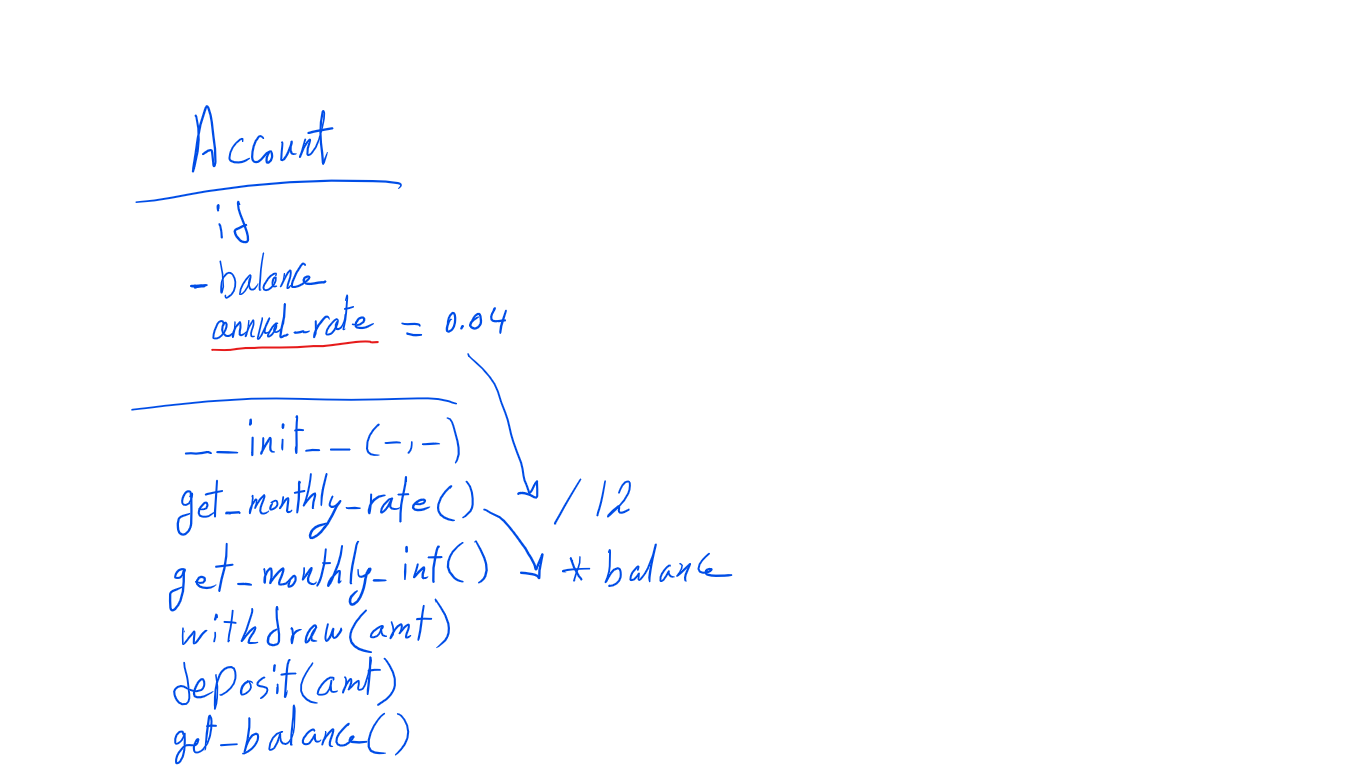 Account
id
-balance
annual_rate = 0.04
__init__(-,-)
get_monthly_rate() / 12
get_monthly_int() * balance
withdraw(amt)
deposit(amt)
get_balance()